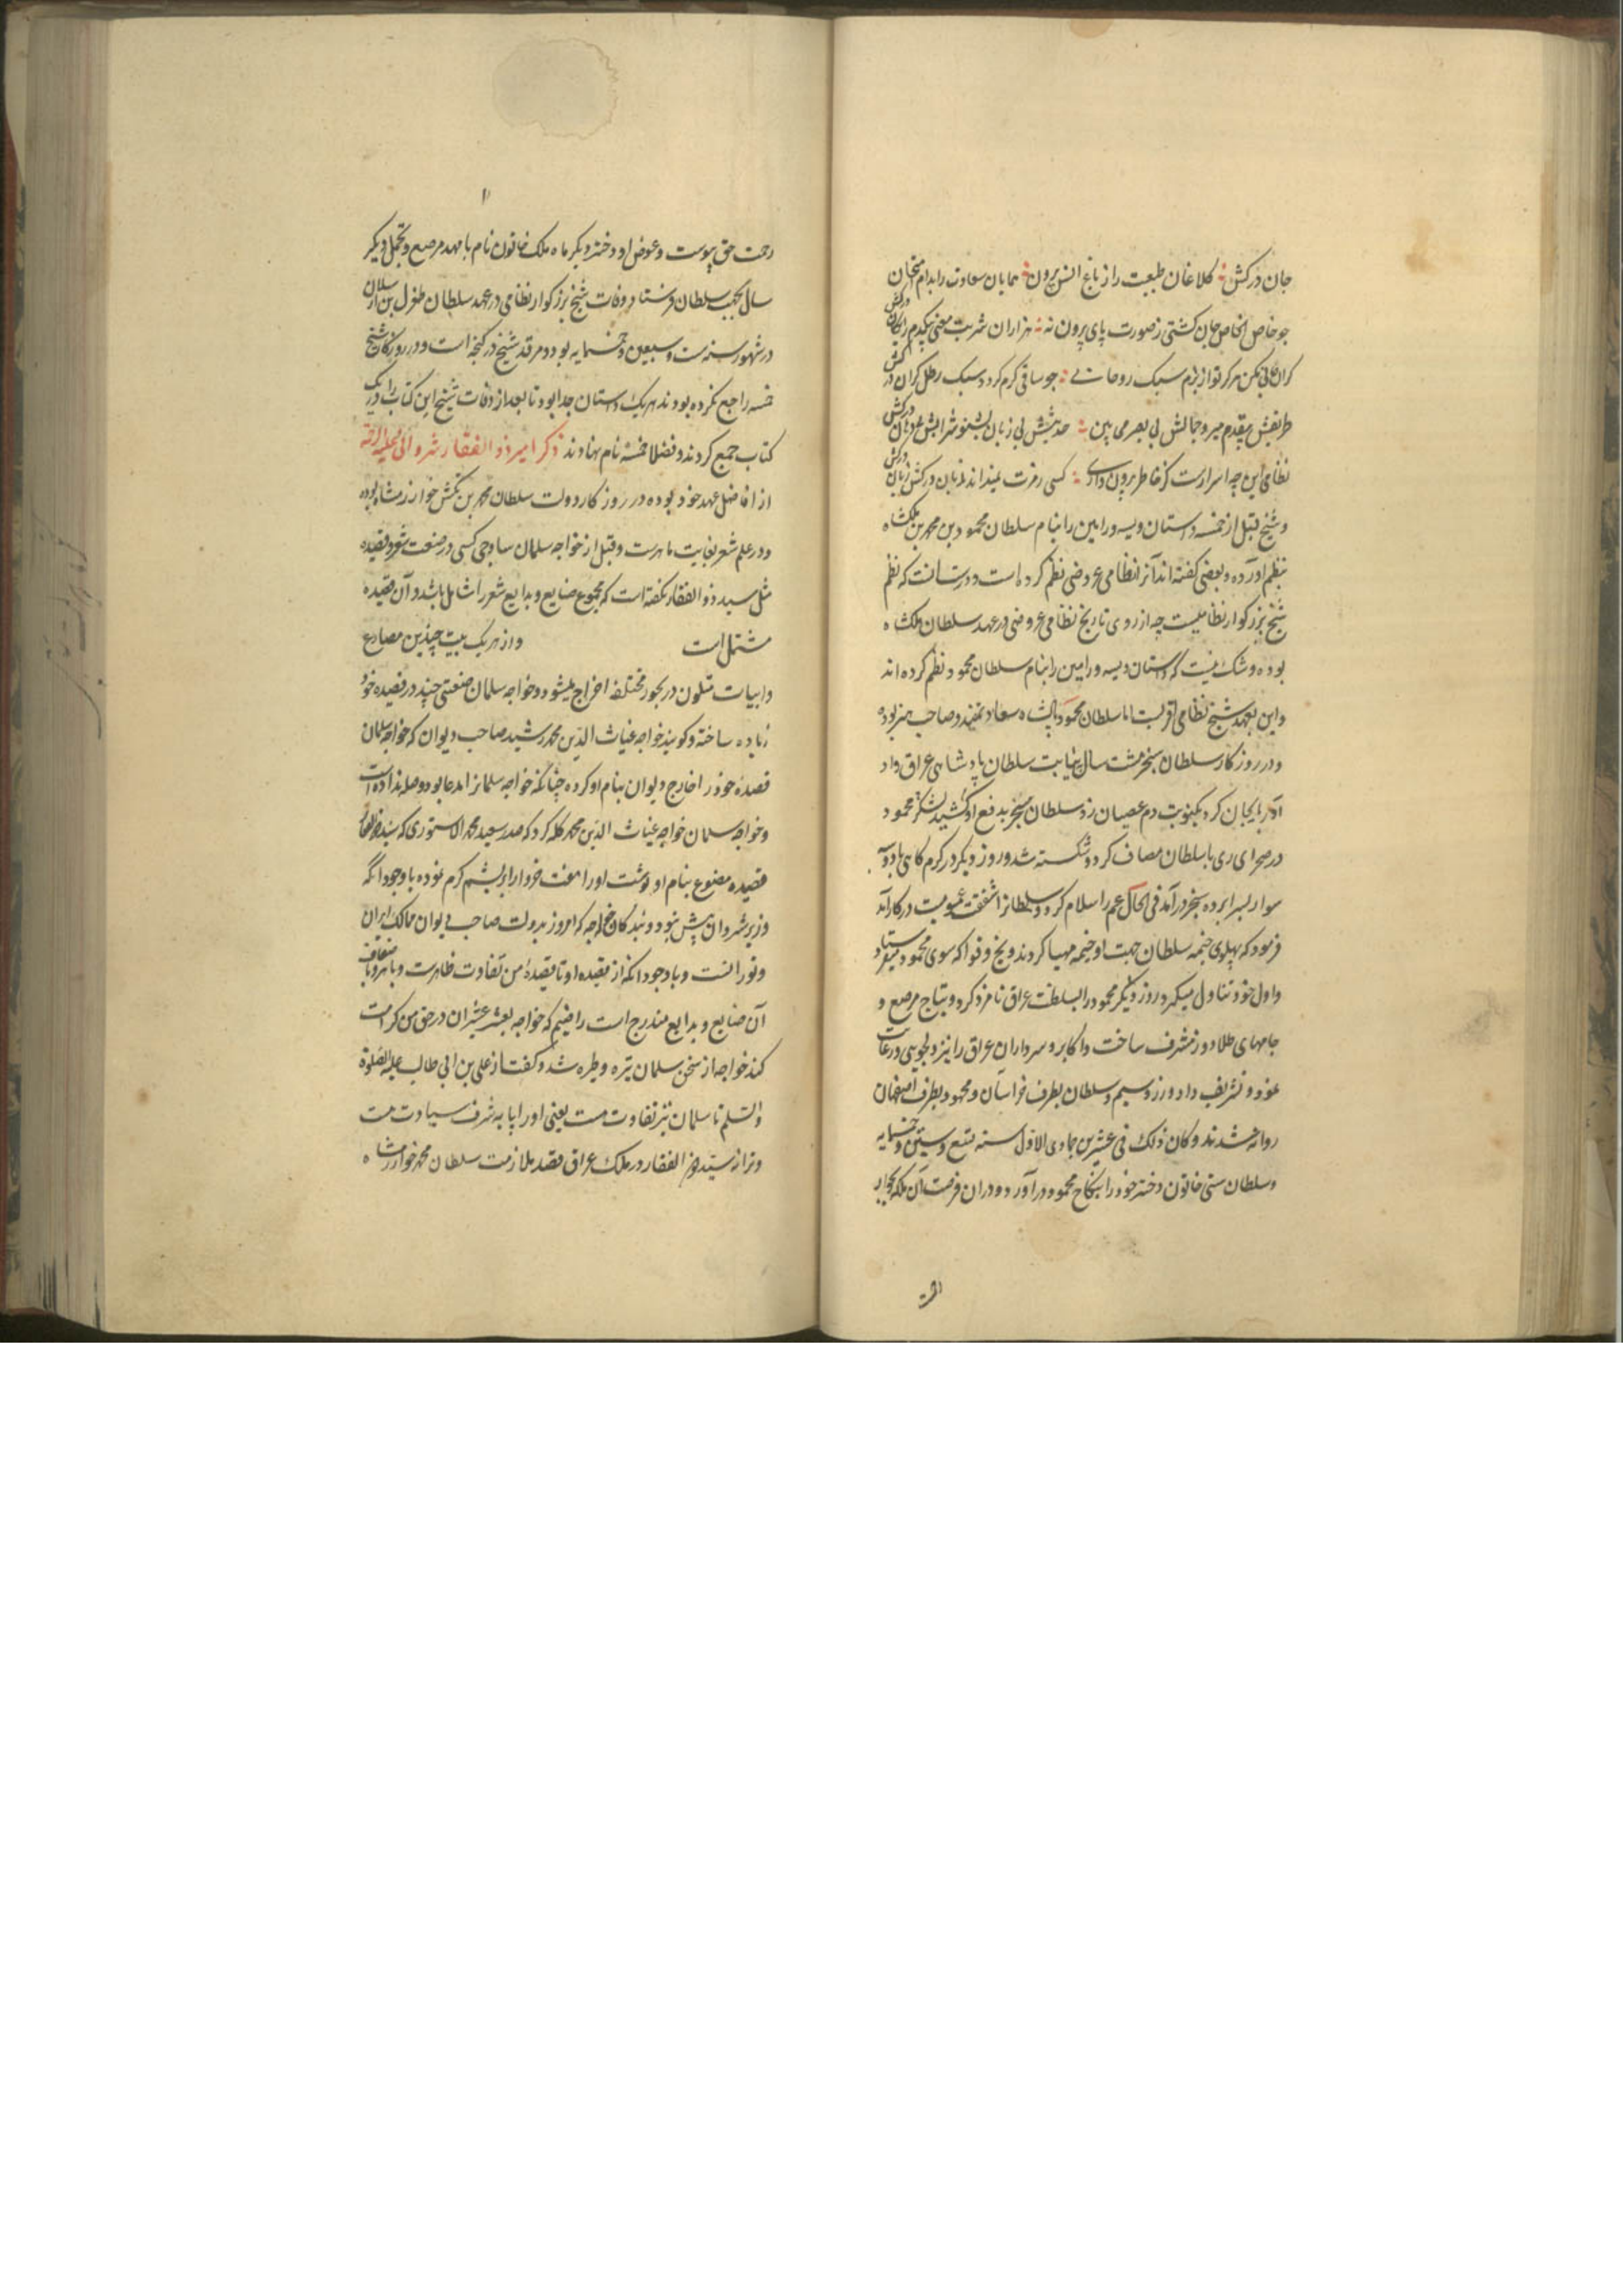 جان درکش : کلاغان طبیعت را ز باغ انس بیرون : همایان سعادت را بدام امتحان درکش
چو خاص الخاص جان کشتی ز صورت پای بیرون نه : هزاران شربت معنی بیکدم رایکان درکش
کران جانی مکن هرکز تو از بزم سبک روحان : چو ساقی کرم کردد سبک رطل کران درکش
طریقش بیقدم میرو جمالش بی بصر می بین : حدیثش بی زبان بشنو شرابش بی دهان درکش
نظامی این چه اسرارست کز خاطر برون دادی : کسی رمزت نمیداند زبان درکش زبان درکش
و شیخ قبل از خمسه داستان ویسه و رامین را بنام سلطان محمود بن محمد بن ملکشاه
بنظم اورده و بعضی کفته اند آنرا نظامی عروضی نظم کرده است و درست انست که نظم
شیخ بزرکوار نظامیست چه از روی تاریخ نظامی عروضی در عهد سلطان ملکشاه
بوده و شک نیست که داستان ویسه و رامین را بنام سلطان محمود نظم کرده اند
و این بعهد شیخ نظامی اقربست اما سلطان محمود پادشاه سعادتمند و صاحب هنر بوده
و در روزکار سلطان سنجر هشت سال بنیابت سلطان پادشاهی عراق و اد
آذربایجان کرد یکنوبت دم عصیان زد سلطان سنجر بدفع او لشکر کشید محمود
در صحرای ری با سلطان مصاف کرد و شکسته شد و روز دیکر در کرم کاهی با دو سه
سوار بسرابرده سنجر درآمد فی الحال عم را سلام کرد و سلطانرا شفقت عمومیت در کار آمد
فرمود که پهلوی خیمه سلطان جهت او خیمه مهیا کردند و یخ و فواکه سوی محمود میفرستاد
و اول خود تناول میکرد و روز دیکر محمود را بسلطنت عراق نامزد کرد و بتاج مرصع و
جامهای طلادوز مشرف ساخت و اکابر و سرداران عراق را نیز دلجویی و رعایت
نمود و تشریف داد و زر و سیم و سلطان بطرف خراسان و محمود بطرف اصفهان
روانه شدند و کان ذلک فی عشرین جمادی الاول سنه تسع و ستین و خمسمایه
و سلطان ستی خاتون دختر خود را بنکاح محمود درآورد و دران فرصت آن ملکه بجوار
رحمت حق پیوست و عوض او دختر دیکر ماه ملک خاتون نام با مهد مرصع و تجمل دیکر
سال بجهت سلطان فرستاد و وفات شیخ بزرکوار نظامی در عهد سلطان طغرل بن ارسلان
در شهور سنه ست و سبعین و خمسمایه بود و مرقد شیخ در کنجه است و در روزکار شیخ
خمسه را جمع نکرده بودند هر یک داستان جدا بود تا بعد از وفات شیخ این کتاب را در یک
کتاب جمع کردند و فضلا خمسه نام نهادند ذکر امیر ذوالفقار شروانی علیه الرحمة
از افاضل عهد خود بوده در روزکار دولت سلطان محمد بن تکش خوارزمشاه بوده
و در علم شعر بغایت ماهرست و قبل از خواجه سلمان ساوجی کسی در صنعت شعر و قصیده
مثل سید ذوالفقار نکفته است که مجموع صنایع و بدایع شعر را شامل باشد و آن قصیده
مشتمل است و از هر یک بیت چندین مصارع
و ابیات متلون در بحور مختلفه اخراج میشود و خواجه سلمان صنعتی چند در قصیده خود
زیاده ساخته و کویند خواجه غیاث الدین محمد رشید صاحب دیوان که خواجه سلمان
قصیده خود را خارج دیوان بنام او کرده چنانکه خواجه سلمانرا مدعا بود و صله نداده است
و خواجه سلمان خواجه غیاث الدین محمد کله کرد که صدر سعید محمد الاستوری که سید ذوالفقار
قصیده مصنوع بنام او نوشت اورا هفت خروار ابریشم کرم نموده با وجود انکه
وزیر شروان بیش نبود و بندکان خواجه که امروز بدولت صاحب دیوان ممالک ایران
و تورانست و با وجود انکه از قصیده او تا قصیده من تفاوت ظاهرست و باضعاف
آن صنایع و بدایع مندرج است راضیم که خواجه بعشر عشیر ان در حق من کرامت
کند خواجه از سخن سلمان تیره و طیره شد و کفت از علی بن ابی طالب علیه الصلوة
والسلم تا سلمان نیز تفاوت هست یعنی اورا پایه شرف سیادت هست
و ترا نه سید ذوالفقار در ملک عراق قصد ملازمت سلطان محمد خوارزمشاه